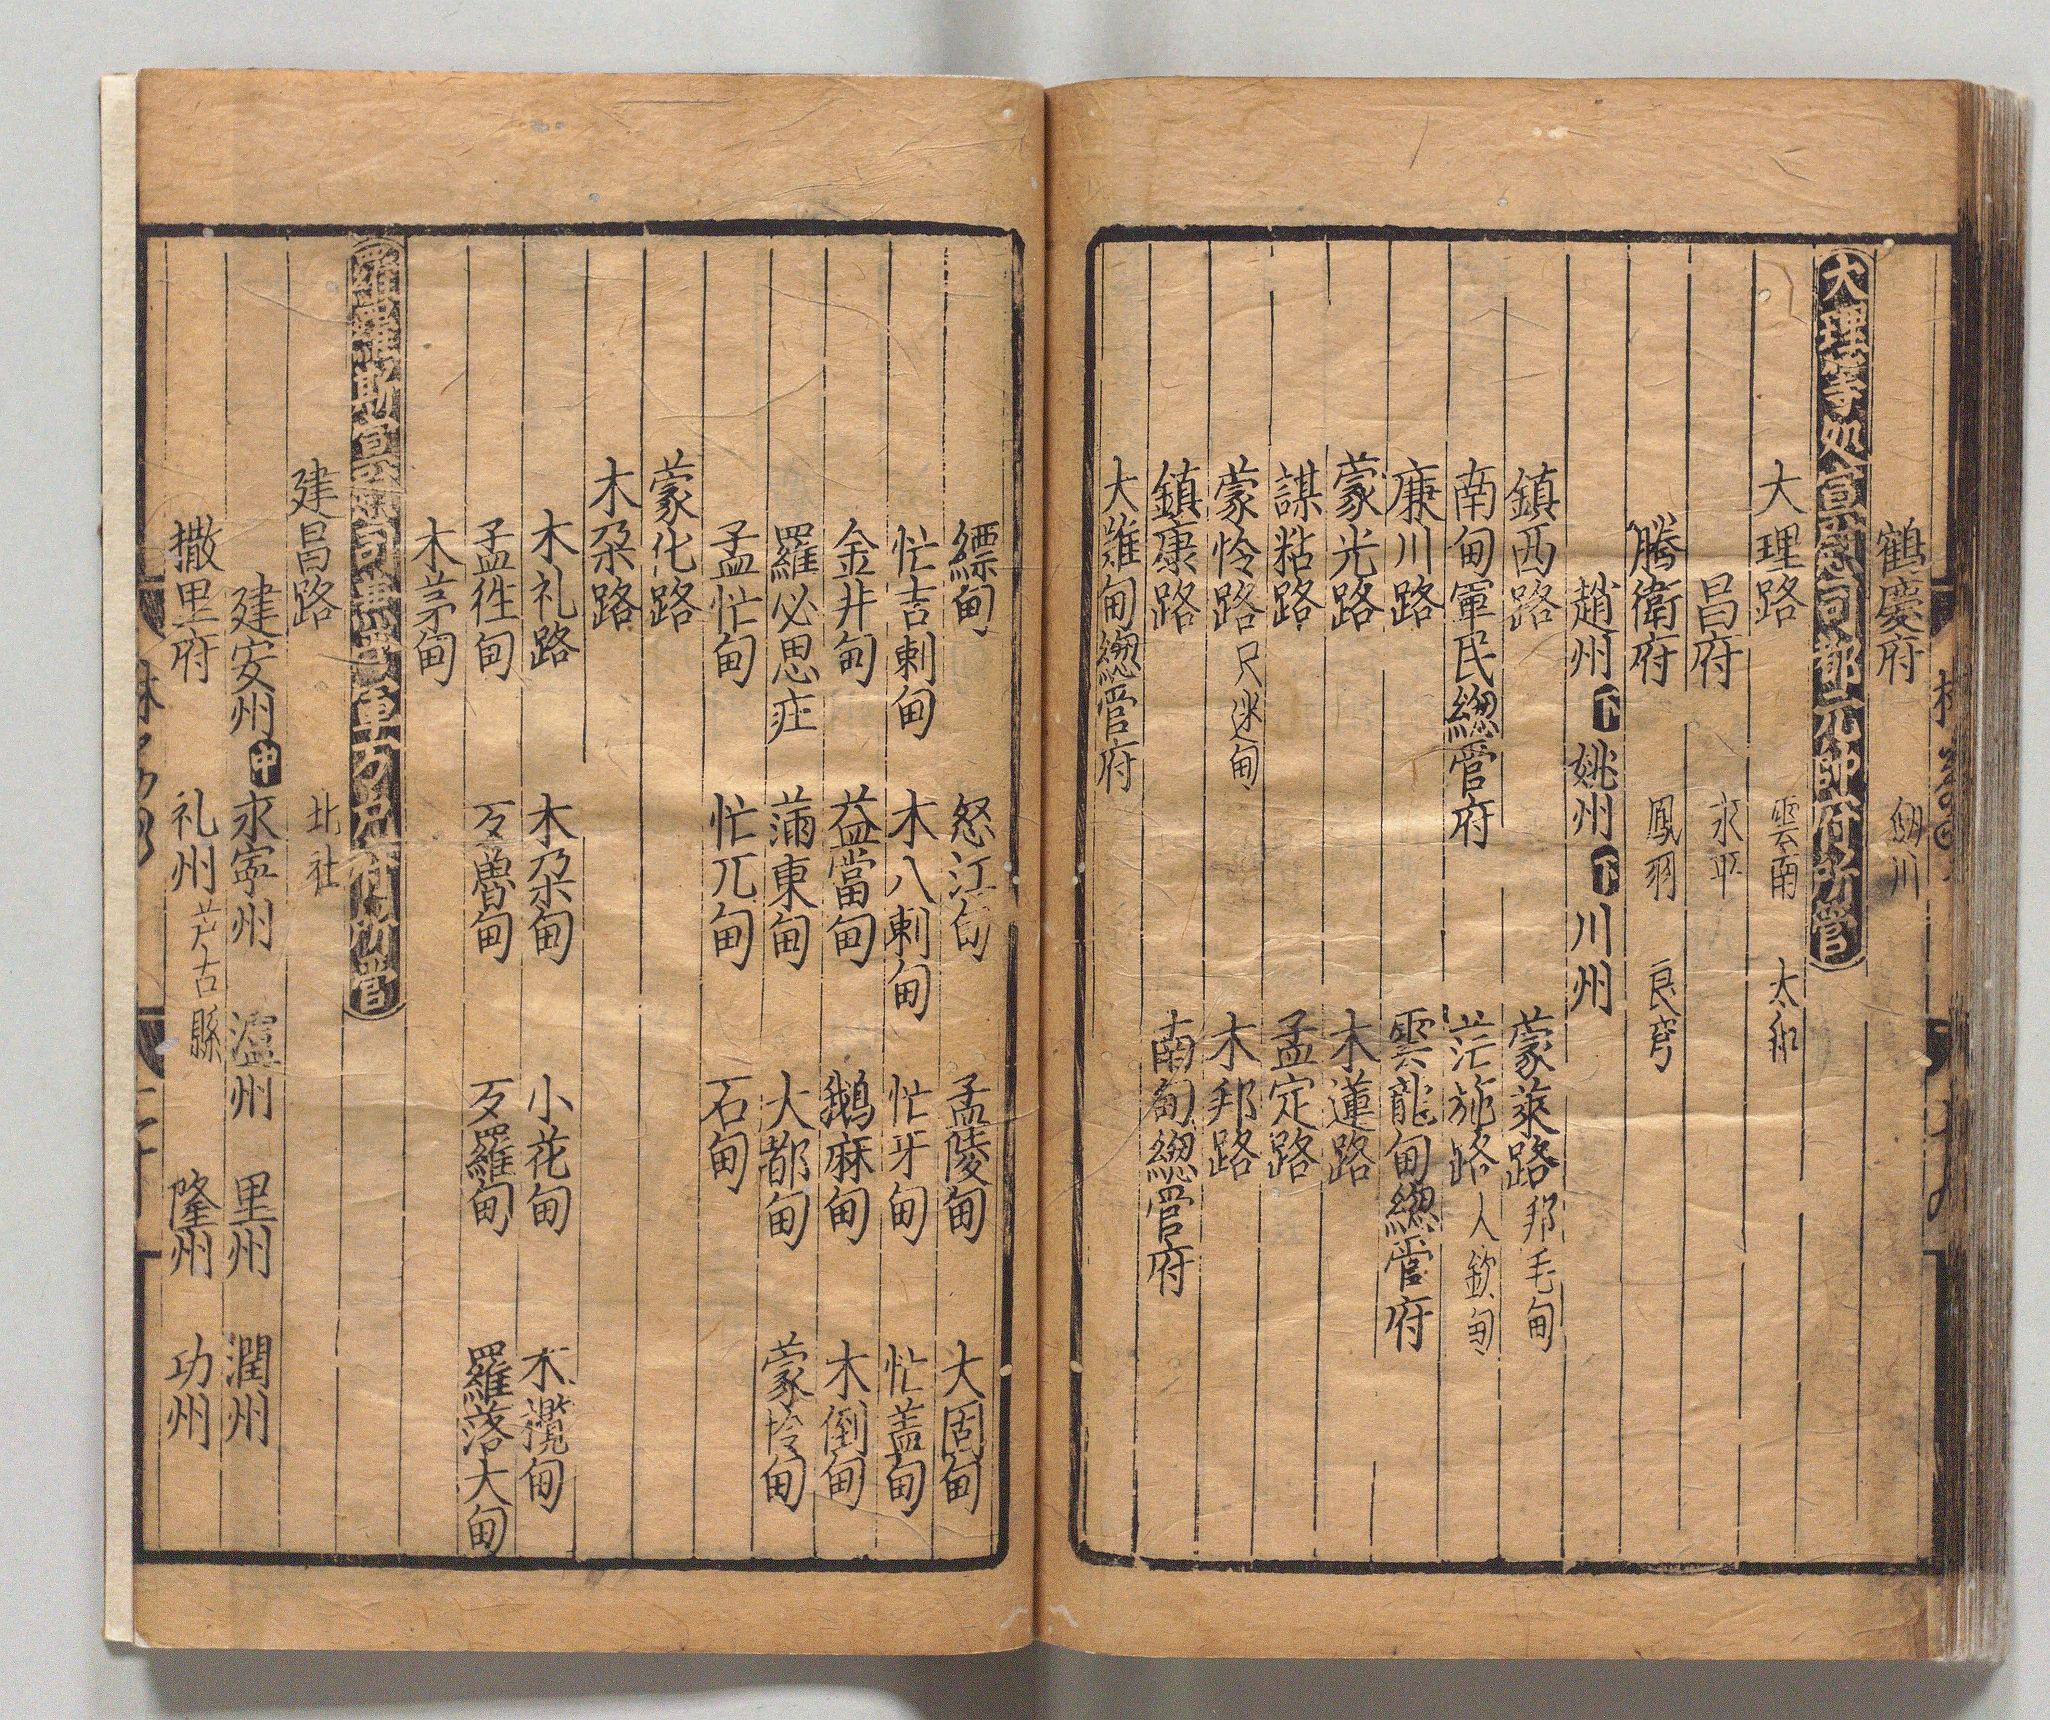 鶴慶府　劒川
大理等処宣慰司都元帥府所管
大理路　雲南　太和
昌府　永平
騰衝府　鳳羽　良穹
趙州下姚州下川州
鎮西路　蒙萊路邦毛甸
南甸軍民緫管府　茫施路人欽甸
㢘川路　雲龍甸緫管府
蒙光路　木蓮路
謀粘路　孟定路
蒙怜路只迷甸　木邦路
鎮康路　南甸緫管府
大難甸緫管府
縹甸　怒江甸　孟陵甸　大固甸
忙吉剌甸　木八剌甸　忙牙甸　忙盖甸
金井甸　益當甸　鵝麻甸　木倒甸
羅必思庄　蒲東甸　大都甸　蒙怜甸
孟忙甸　忙兀甸　石甸
蒙化路
木朶路
木礼路　木朶甸　小花甸　木攬甸
孟徃甸　歹魯甸　歹羅甸　羅落大甸
木茅甸
羅羅斯宣慰司兼管軍万户府所管
建昌路　北社
建安州中永寧州　瀘州　里州　濶州
撒里府　礼州芦古縣　隆州　功州